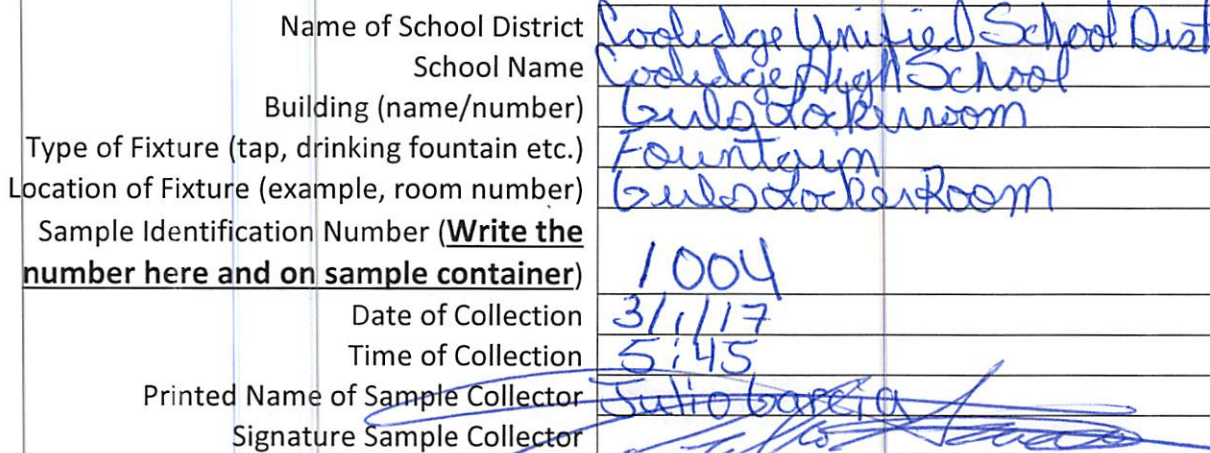 Name of School District Coolidge Unified School Dist
School Name Coolidge High School
Building (name/number) Girls Lockerroom
Type of Fixture (tap, drinking fountain etc.) Fountain
Location of Fixture (example, room number) Girls Locker Room
Sample Identification Number (Write the
number here and on sample container) 1004
Date of Collection 3/1/17
Time of Collection 5:45
Printed Name of Sample Collector Julio Garcia
Signature Sample Collector